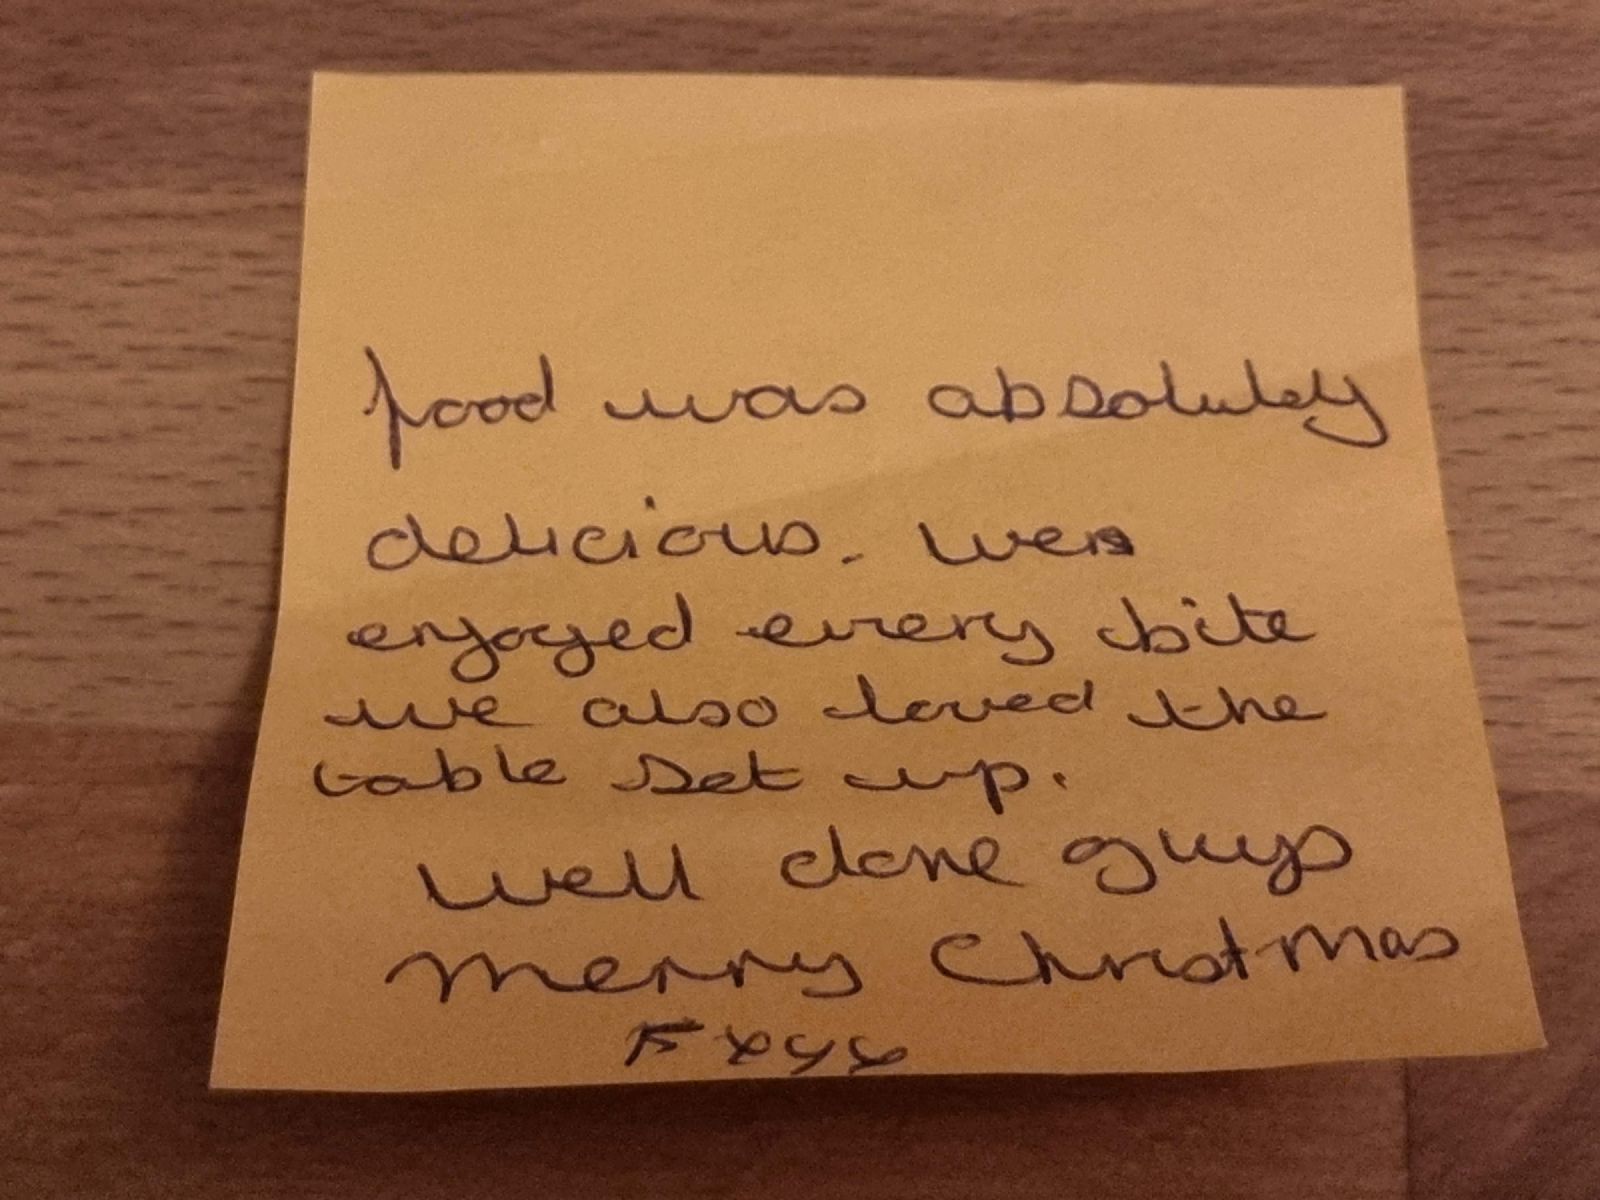 food was absolutely
delicious. We
enjoyed every bite
we also loved the
table set up.
Well done guys
Merry Christmas
F xxx